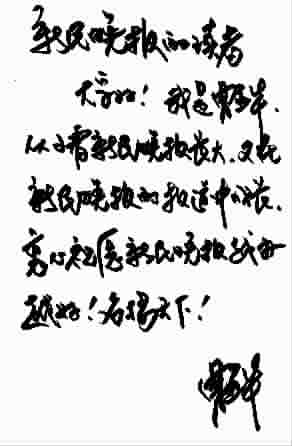 新民晚报的读者
大家好！我是
从小看新民晚报长大，又在
新民晚报的报道中成长，
衷心祝愿新民晚报越办
越好！名扬天下！